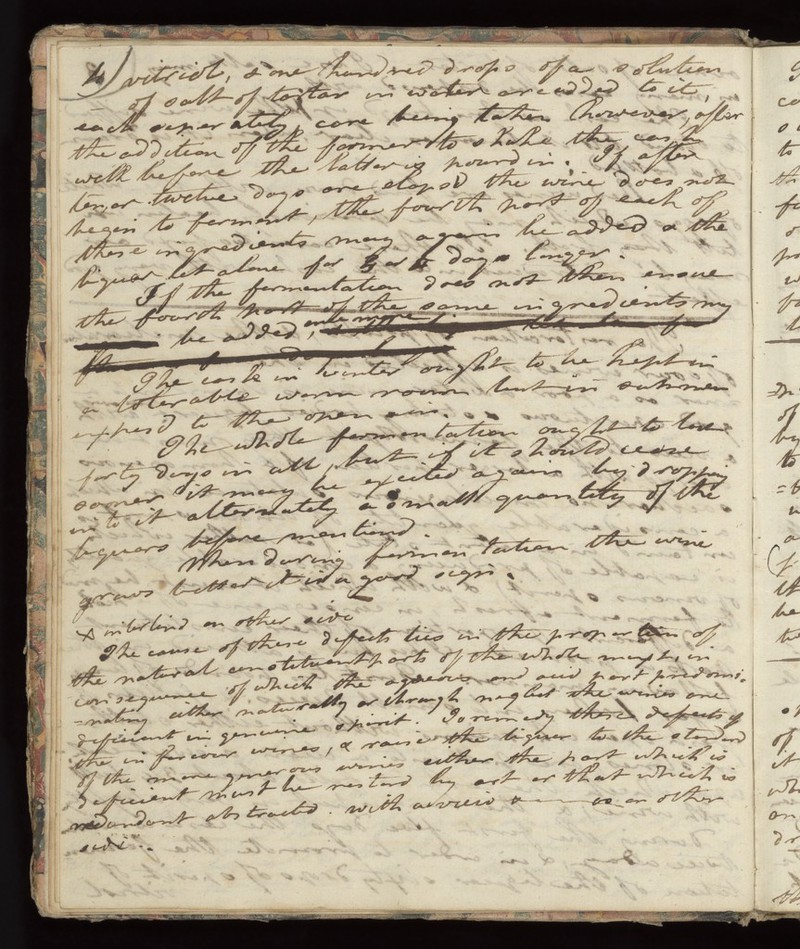 4) vitriol, & one hundred drops of a solution
of salt of tartar in water are added to it,
each seperately, care being taken however, after
the addition of the former to shake the cask
well before the latter is pourd in. If after
ten or twelve days are elaps'd the wine does not
begin to ferment, the fourth part of each of
these ingredients may again be added & the
liquor let alone for 3 or 4 days longer.
If the fermentation does not then ensue
the fourth part of the same ingredients my
be added, once more
The cask in winter ought to be kept in
a tolerable warm room but in summer
exposd to the open air.
The whole fermentation ought to last
forty days in all, but if it should cease
sooner it may be excited again by dropping
in to it alternately a small quantity of the
liquors before mentiond.
When during fermentation the wine
grows better it is a good sign.
x interlind on other side
The cause of these defects lies in the proportion of
the natural constituent parts of the whole mixt, in
consequence of which the aqueous and acid part predomi-
=nating either naturally or through neglect the wines are
deficient in genuine spirit. To remedy these defects of
the inferiour wines, & raise the liquor to the standard
of the more generous wines either the part which is
deficient must be restord by art or that which is
redundant abstracted. with as on other
side.